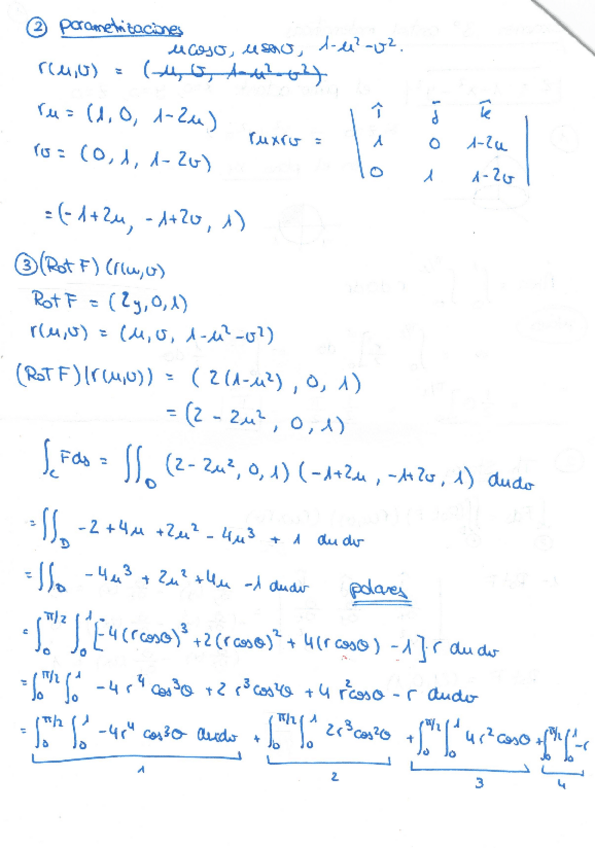 ② parametrizaciones
u cosv, u senv, 1-u²-v².
r(u,v) = (u, v, 1-u²-v²)
ru = (1, 0, 1-2u)
rv = (0, 1, 1-2v)
ru×rv = | i j k |
| 1 0 1-2u |
| 0 1 1-2v |
= (-1+2u, -1+2v, 1)
③ (Rot F) (r(u,v)
Rot F = (2y, 0, 1)
r(u,v) = (u, v, 1-u²-v²)
(Rot F)(r(u,v)) = (2(1-u²), 0, 1)
= (2-2u², 0, 1)
∫c Fds = ∬D (2-2u², 0, 1) (-1+2u, -1+2v, 1) dudv
= ∬D -2+4u+2u²-4u³ + 1 dudv
= ∬D -4u³+2u²+4u-1 dudv polares
= ∫₀^π/2 ∫₀^1 [-4(r cosθ)³ + 2(r cosθ)² + 4(r cosθ) - 1] r dudv
= ∫₀^π/2 ∫₀^1 -4r⁴ cos³θ + 2r³cos²θ + 4r²cosθ - r dudv
= ∫₀^π/2 ∫₀^1 -4r⁴ cos³θ dudv + ∫₀^π/2 ∫₀^1 2r³cos²θ + ∫₀^π/2 ∫₀^1 4r²cosθ + ∫₀^π/2 ∫₀^1 -r
1 2 3 4